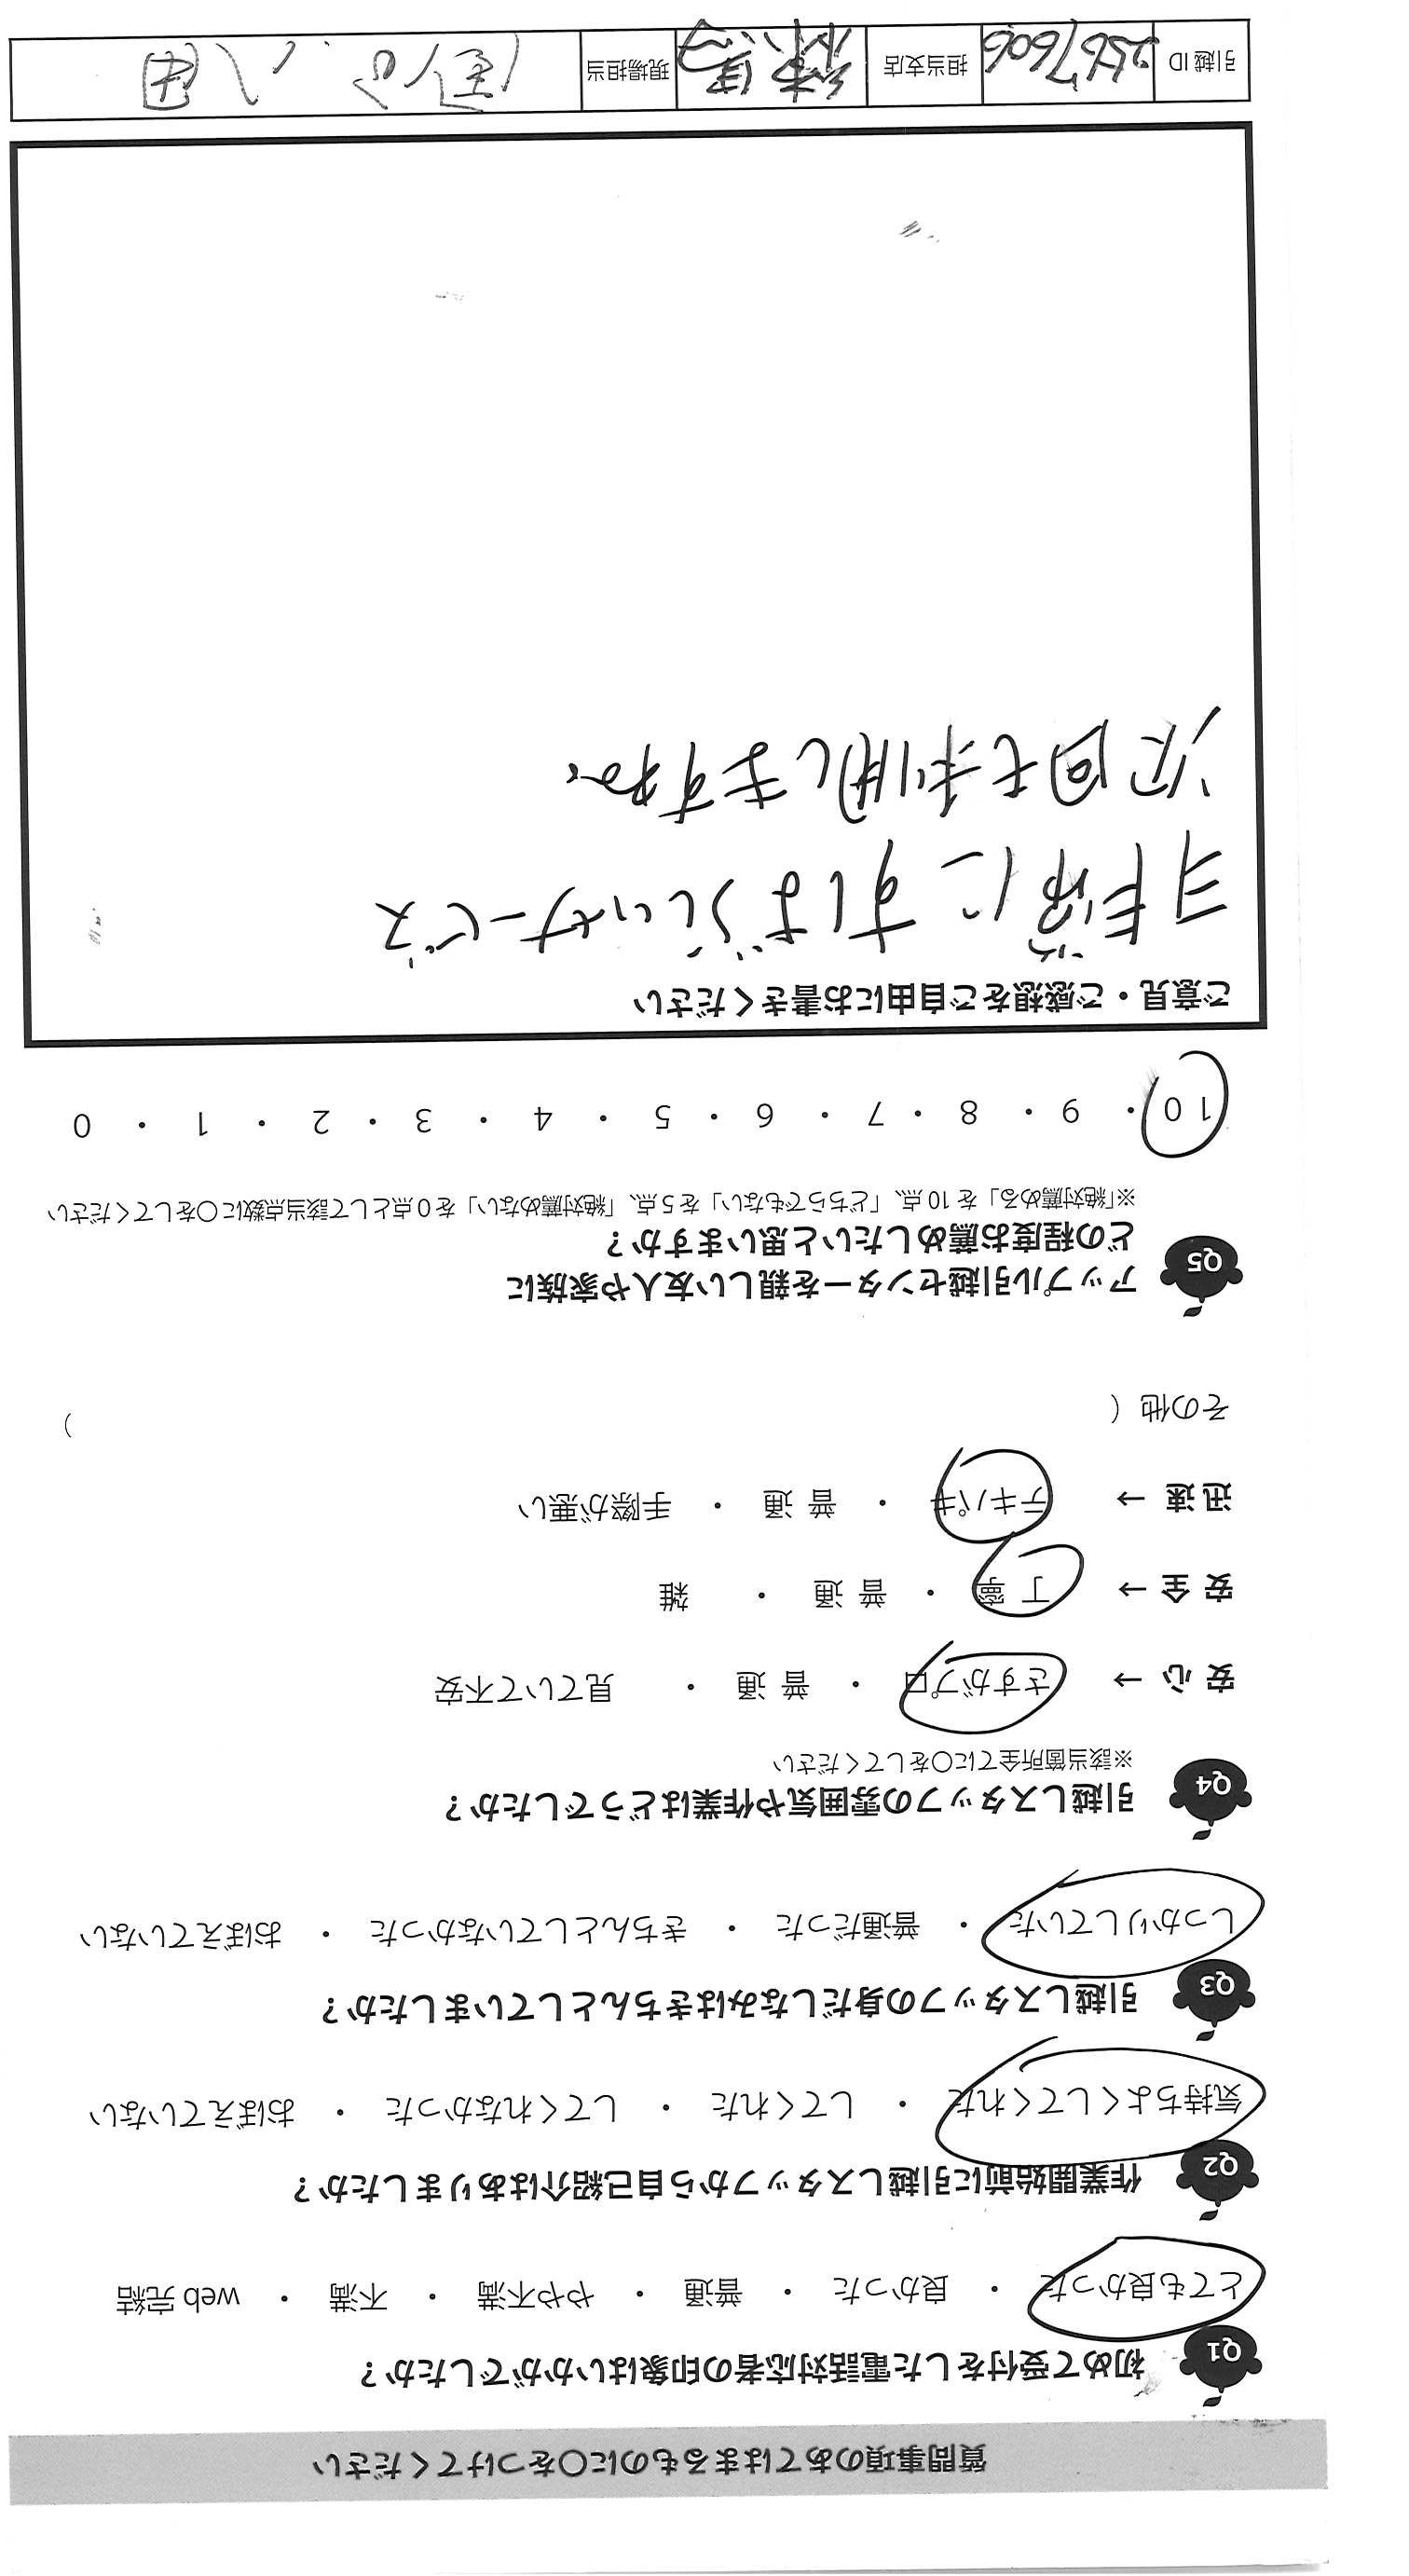 質問事項のあてはまるものに○をつけてください
Q1 初めて受付をした電話対応者の印象はいかがでしたか？
とても良かった ・ 良かった ・ 普通 ・ やや不満 ・ 不満 ・ web 完結
Q2 作業開始前に引越しスタッフから自己紹介はありましたか？
気持ちよくしてくれた ・ してくれた ・ してくれなかった ・ おぼえていない
Q3 引越しスタッフの身だしなみはきちんとしていましたか？
しっかりしていた ・ 普通だった ・ きちんとしていなかった ・ おぼえていない
Q4 引越しスタッフの雰囲気や作業はどうでしたか？
※該当箇所全てに○をしてください
安 心 → さすがプロ ・ 普 通 ・ 見ていて不安
安 全 → 丁 寧 ・ 普 通 ・ 雑
迅 速 → テキパキ ・ 普 通 ・ 手際が悪い
その他（ ）
Q5 アップル引越センターを親しい友人や家族に
どの程度お薦めしたいと思いますか？
※「絶対薦める」を 10 点、「どちらでもない」を 5 点、「絶対薦めない」を 0 点として該当点数に○をしてください
10 ・ 9 ・ 8 ・ 7 ・ 6 ・ 5 ・ 4 ・ 3 ・ 2 ・ 1 ・ 0
ご意見・ご感想をご自由にお書きください
非常にすばらしいサービス
次回も利用しますね。
引越 ID 2567606 担当支店 練馬 現場担当